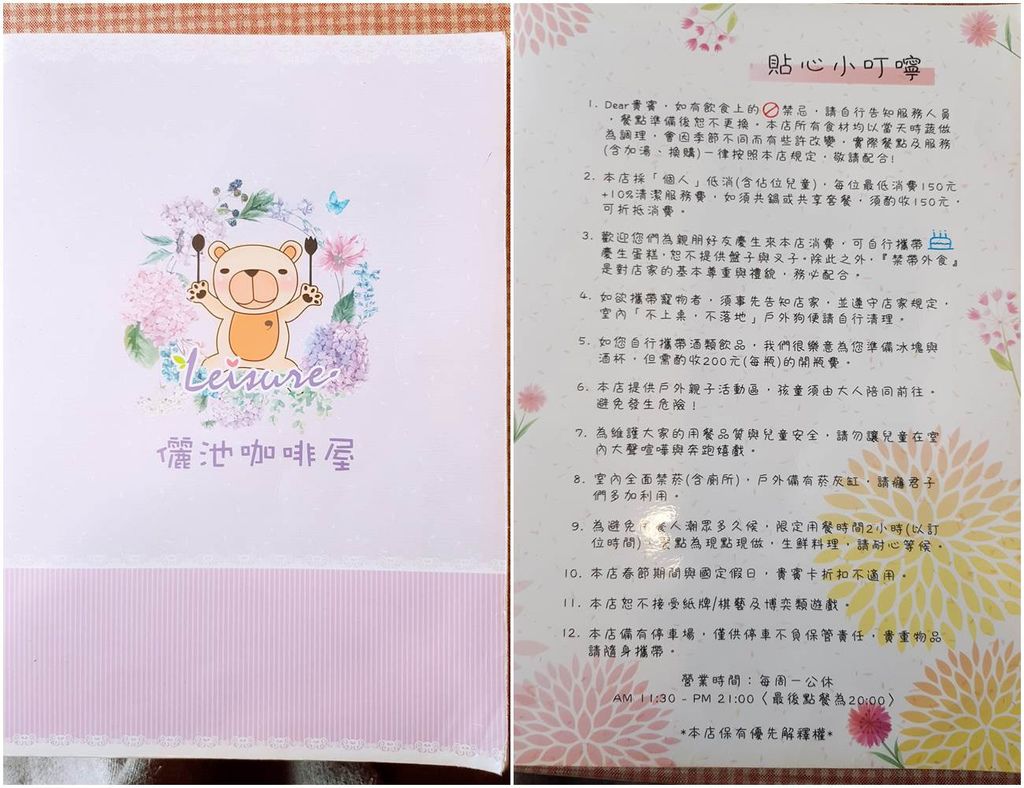 Leisure
儷池咖啡屋
貼心小叮嚀
1. Dear貴賓，如有飲食上的禁忌，請自行告知服務人員
，餐點準備後恕不更換。本店所有食材均以當天時蔬做
為調理，會因季節不同而有些許改變，實際餐點及服務
(含加湯、換購)一律按照本店規定，敬請配合!
2. 本店採「個人」低消(含佔位兒童)，每位最低消費150元
+10%清潔服務費，如須共鍋或共享套餐，須酌收150元，
可折抵消費。
3. 歡迎您們為親朋好友慶生來本店消費，可自行攜帶
慶生蛋糕，恕不提供盤子與叉子。除此之外，『禁帶外食』
是對店家的基本尊重與禮貌，務必配合。
4. 如欲攜帶寵物者，須事先告知店家，並遵守店家規定，
室內「不上桌，不落地」戶外狗便請自行清理。
5. 如您自行攜帶酒類飲品，我們很樂意為您準備冰塊與
酒杯，但需酌收200元(每瓶)的開瓶費。
6. 本店提供戶外親子活動區，孩童須由大人陪同前往。
避免發生危險！
7. 為維護大家的用餐品質與兒童安全，請勿讓兒童在室
內大聲喧嘩與奔跑嬉戲。
8. 室內全面禁菸(含廁所)，戶外備有菸灰缸，請癮君子
們多加利用。
9. 為避免人潮眾多久候，限定用餐時間2小時(以訂
位時間)點為現點現做，生鮮料理，請耐心等候。
10. 本店春節期間與國定假日，貴賓卡折扣不適用。
11. 本店恕不接受紙牌/棋藝及博奕類遊戲。
12. 本店備有停車場，僅供停車不負保管責任，貴重物品
請隨身攜帶。
營業時間：每周一公休
AM 11:30 - PM 21:00〈最後點餐為20:00〉
*本店保有優先解釋權*